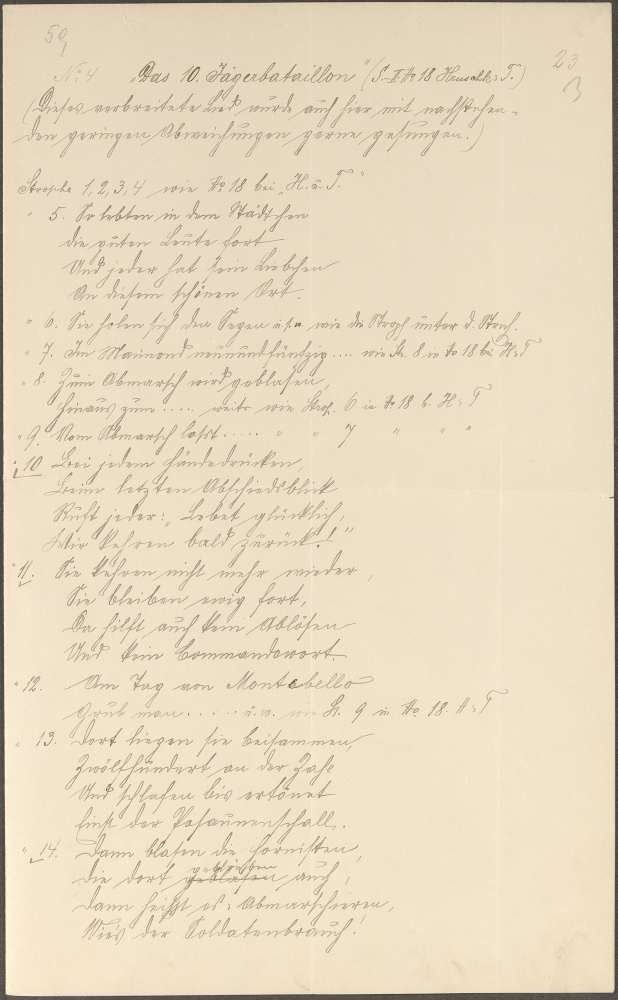 59
23
3
No 4 „Das 10. Jägerbataillon" (S. II No 18 H. u. T.)
(Dieses verbreitete Lied wurde auch hier mit nachstehen-
den geringen Abweichungen gerne gesungen.)
Strophe 1, 2, 3, 4 wie No 18 bei „H. u. T."
" 5. So lebten in dem Städtchen
die guten Leute fort
Und jeder hat sein Liebchen
An diesem schönen Ort.
" 6. Sie holen sich den Segen u.s.w. wie die Stroph unter d. Stroh.
" 7. Im Maimond neunundfünfzig .... wie St. 8 in No 18 bei H. u. T
" 8. Zum Abmarsch wird geblasen,
Hinaus zum ..... weiter wie Stof. 6 in No 18 b. H. u. T
" 9. Vom Abmarsch lasst ..... " " 7 " " "
" 10 Bei jedem Händedrücken,
Beim letzten Abschiedsblick
Ruft jeder: „Lebet glücklich,
Wir kehren bald zurück!"
" 11. Sie kehren nicht mehr wieder,
Sie bleiben ewig fort,
Da hilft auch kein Ablösen
Und kein Commandowort.
" 12. Am Tag von Montebello
Grub man ..... u.s. wie St. 9 in No 18. H. u. T
" 13. Dort liegen sie beisammen,
Zwölfhundert an der Zahl
Und schlafen bis ertönet
Einst der Posaunenschall.
" 14. Dann blasen die Hornisten,
die dort geblieben auch,
dann heißt es: Abmarschieren,
Wie's der Soldatenbrauch!